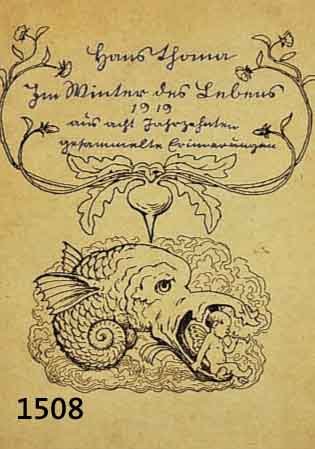 Hans Thoma
Im Winter des Lebens
1919
aus acht Jahrzehnten
gesammelte Erinnerungen
1508